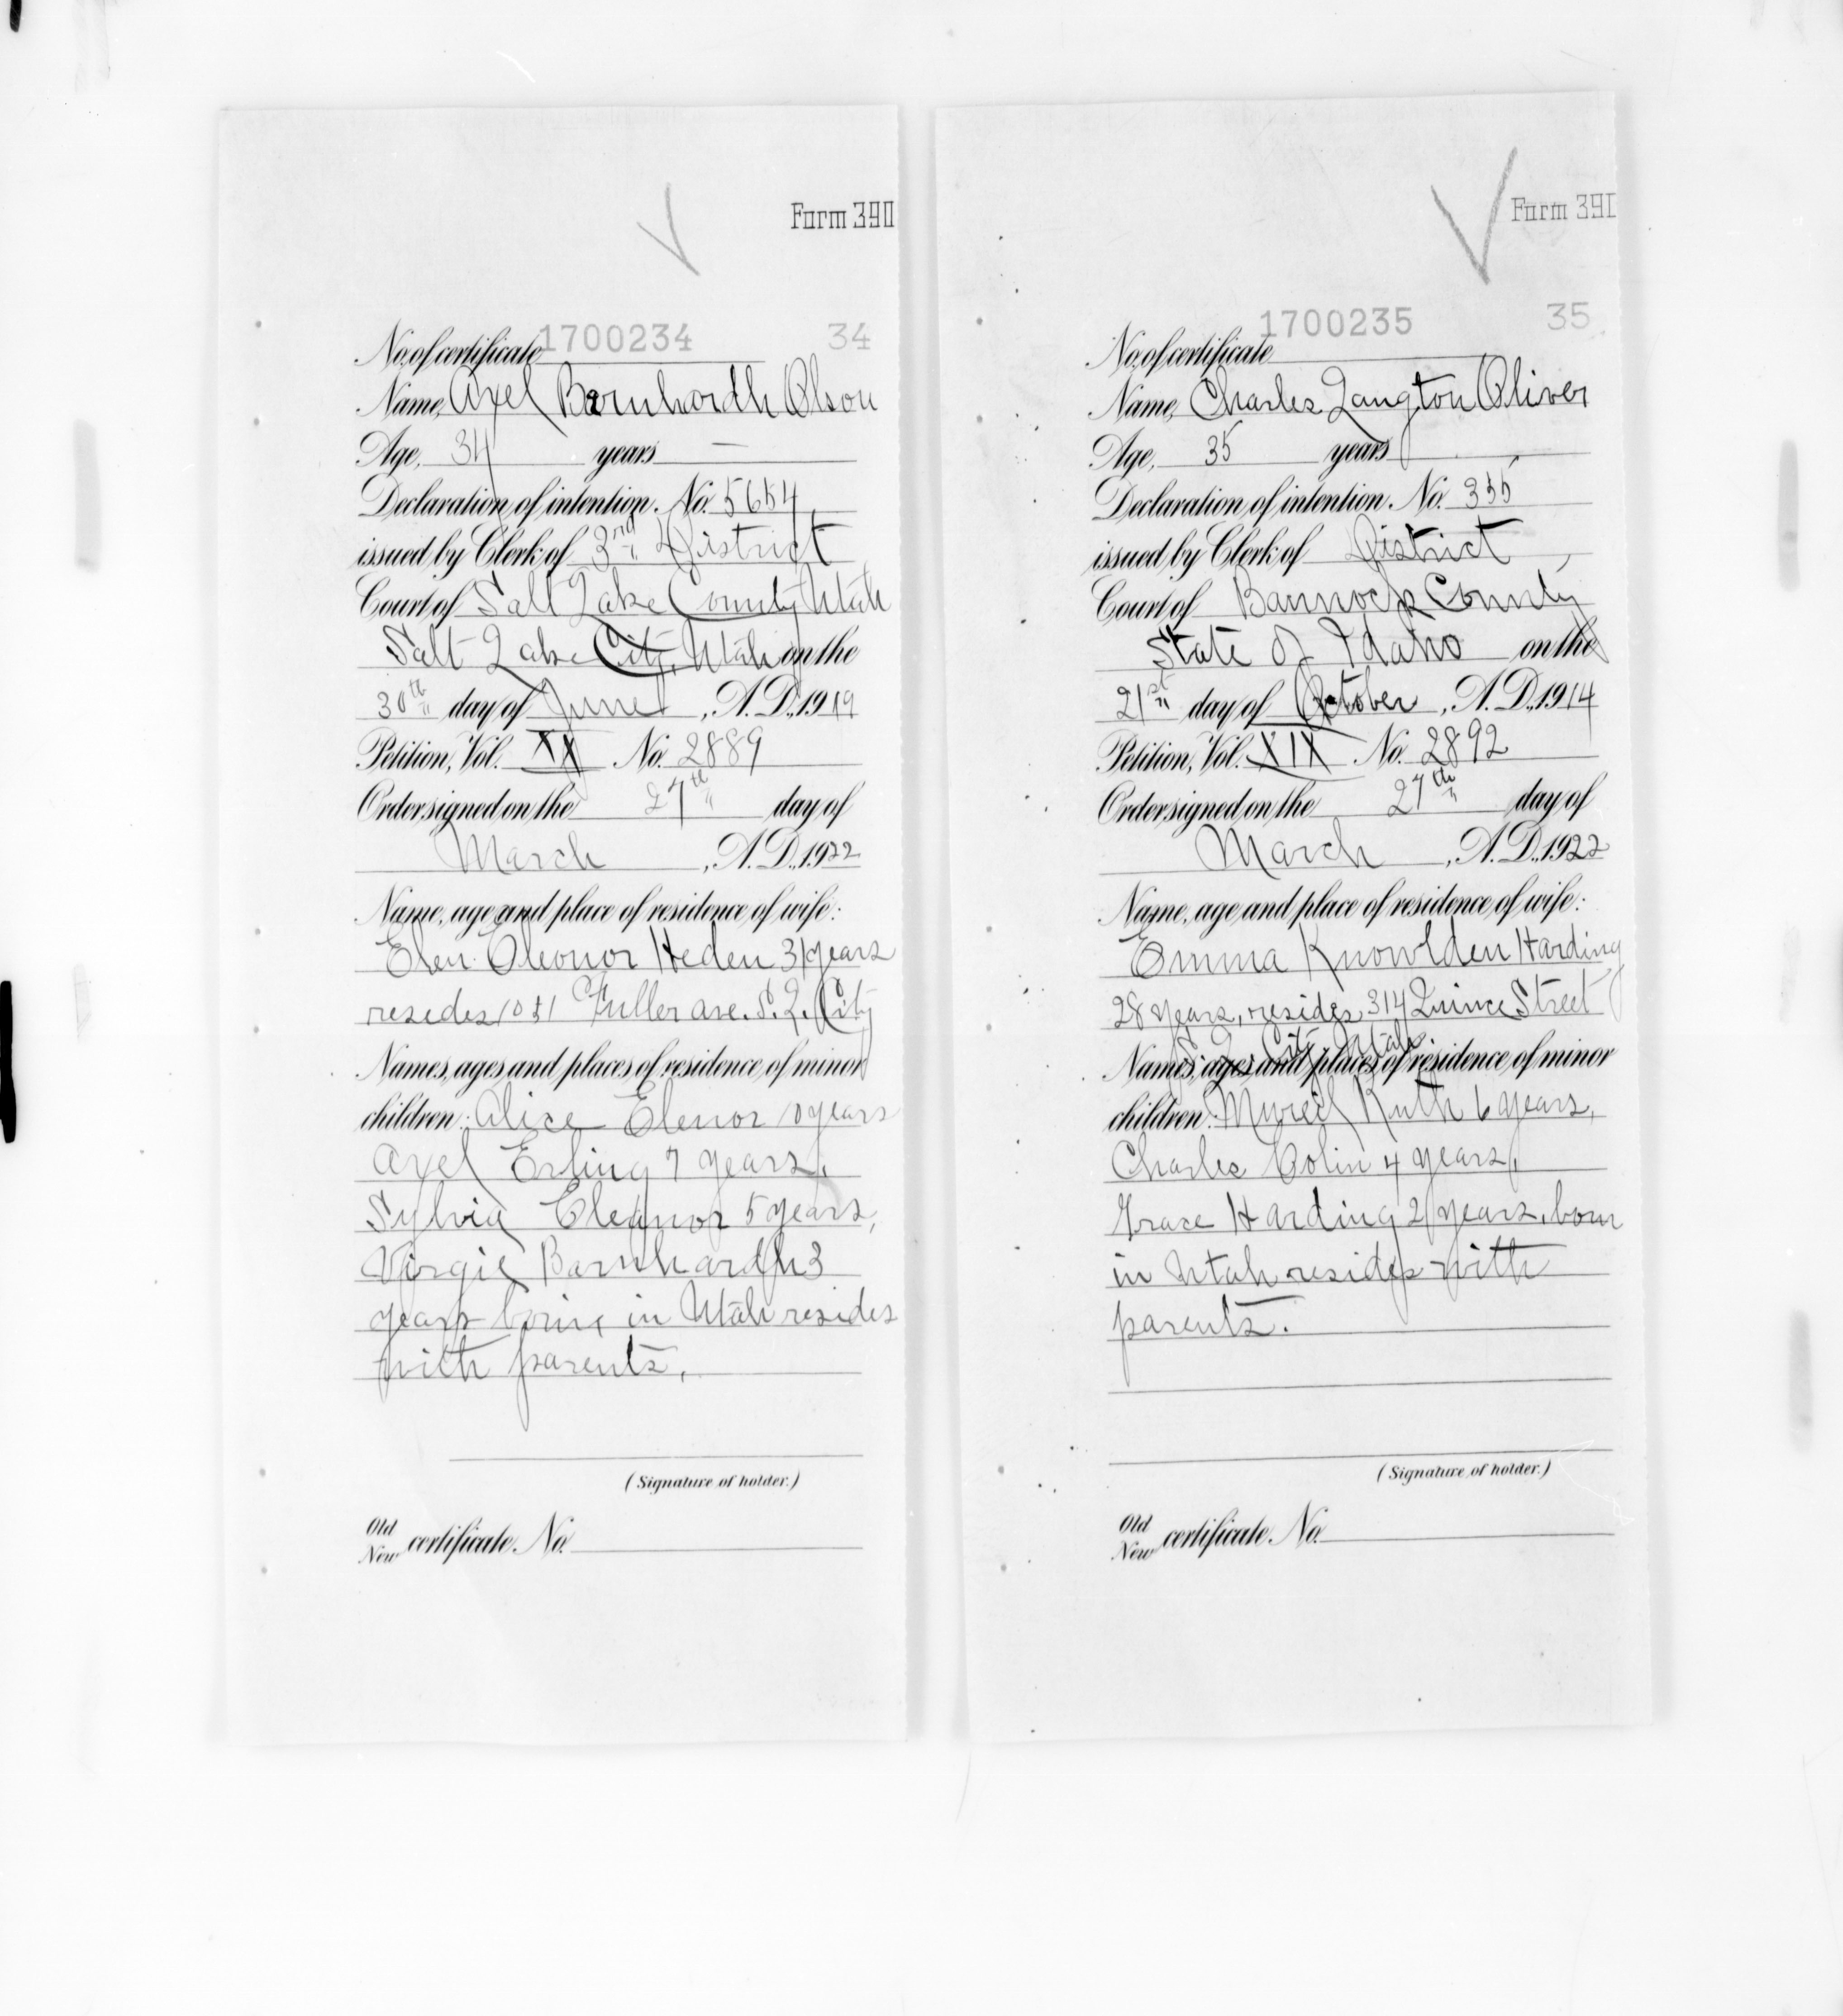 Form 390
No. of certificate 1700234 34
Name, Axel Bernhardh Olson
Age, 34 years —
Declaration of intention, No. 5654
issued by Clerk of 3rd District
Court of Salt Lake County Utah
Salt Lake City, Utah on the
30th day of June, A.D., 1919
Petition, Vol. XX No. 2889
Order signed on the 27th day of
March, A.D., 1922
Name, age and place of residence of wife:
Elen Oleonor Heden 31 years
resides 1051 Fuller ave. S. L. City
Names, ages and places of residence of minor
children: Alice Elenor 10 years
Axel Erling 7 years,
Sylvia Eleanor 5 years,
Virgil Barnhardh 3
years born in Utah resides
with parents,
(Signature of holder.)
Old
New certificate No.
Form 391
No. of certificate 1700235 35
Name, Charles Langton Oliver
Age, 35 years
Declaration of intention, No. 355
issued by Clerk of District,
Court of Bannock County
State of Idaho on the
21st day of October, A.D., 1914
Petition, Vol. XIX No. 2892
Order signed on the 27th day of
March, A.D., 1922
Name, age and place of residence of wife:
Emma Knowlden Harding
28 years, resides 314 Quince Street
S. L. City, Utah
Names, ages and places of residence of minor
children: Ruth 6 years,
Charles Colin 4 years,
Grace Harding 2 years, born
in Utah resides with
parents.
(Signature of holder.)
Old
New certificate No.